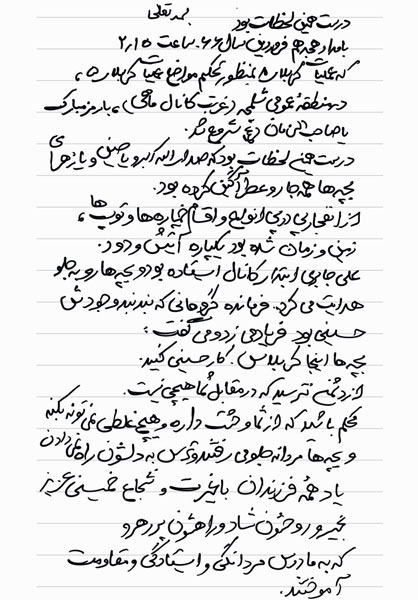 بسمه تعالی
درست همین لحظات بود
بامداد هجدهم فروردین سال ۶۶، ساعت ۲٫۱۵
که عملیات کربلای ۸ بمنظور تحکیم مواضع عملیات کربلای ۵،
در منطقه عمومی شلمچه (غرب کانال ماهی)، با رمز مبارک
یا صاحب الزمان (عج) شروع شد.
درست همین لحظات بود که صدای الله اکبر و یا حسین و یا زهرای
بچه‌ها همه جا رو عطرآگین کرده بود.
از انفجار پی در پی انواع و اقسام خمپاره‌ها و توپ ها،
زمین و زمان شده بود یکپاره آتیش و دود.
علی جایی ابتدای کانال ایستاده بود و بچه‌ها رو به جلو
هدایت می کرد. فرمانده گروهانی که بند بند وجودش
حسینی بود فریاد می زد و می گفت:
بچه‌ها اینجا کربلاس. کار حسینی کنید.
از دشمن نترسید که در مقابل شما هیچی نیست.
محکم باشید که از شما وحشت داره و هیچ غلطی نمی تونه بکنه
و بچه‌ها مردانه جلو می رفتند و ترس به دلشون راه نمی دادن
یاد همه فرزندان با غیرت و شجاع خمینی عزیز
بخیر و روحشون شاد و راهشون پر رهرو
که به ما درس مردانگی و ایستادگی و مقاومت
آموختند.